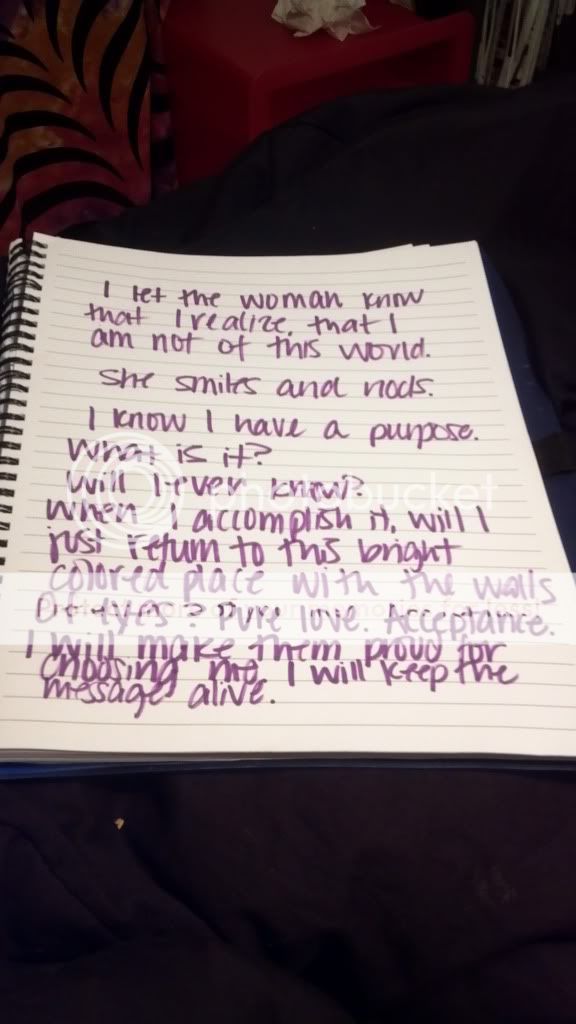 I let the woman know
that I realize, that I
am not of this world.
She smiles and nods.
I know I have a purpose.
What is it?
Will I ever know?
When I accomplish it, will I
just return to this bright
colored place with the walls
Of eyes? Pure love. Acceptance.
I will make them proud for
choosing me. I will keep the
message alive.
photobucket